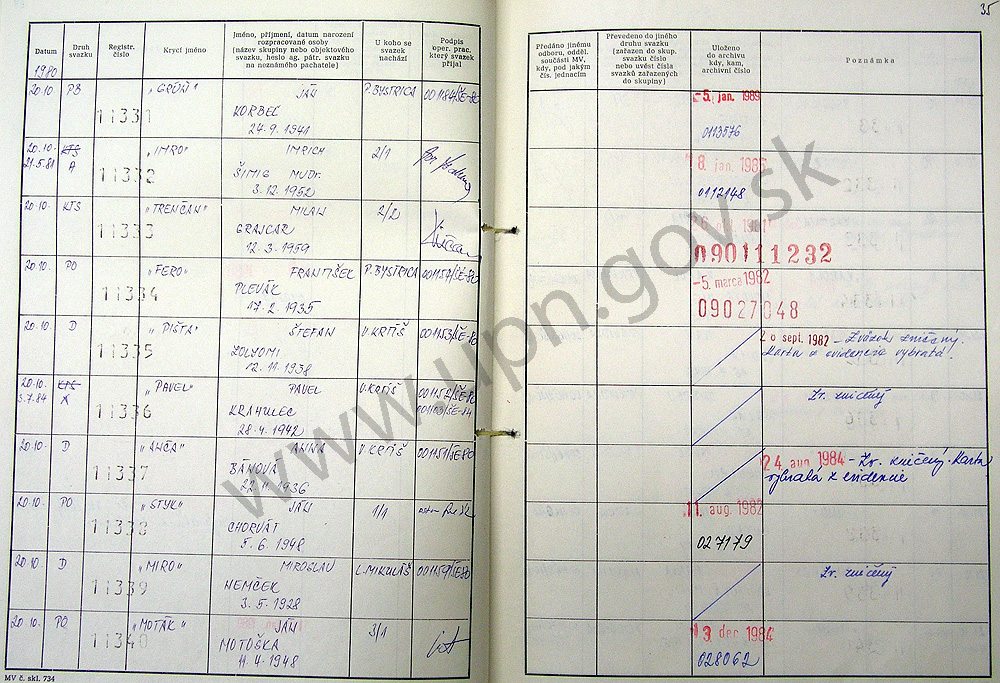 35
Datum
Druh svazku
Registr. číslo
Krycí jméno
Jméno, příjmení, datum narození
rozpracované osoby
(název skupiny nebo objektového
svazku, heslo ag. pátr. svazku
na neznámého pachatele)
U koho se
svazek
nachází
Podpis
oper. prac.
který svazek
přijal
Předáno jinému
odboru, odděl.
součásti MV,
kdy, pod jakým
čís. jednacím
Převedeno do jiného
druhu svazku
(zařazen do skup.
svazku číslo
nebo uvést čísla
svazků zařazených
do skupiny)
Uloženo
do archivu
kdy, kam,
archivní číslo
Poznámka
1980
20.10 PB "GRÚŇ" JÁN P. BYSTRICA 001184/ŠE-80 -5. jan. 1989
11331 KORBEĽ
24.9.1941 0113576
20.10. KTS "IMRO" IMRICH 2/1 8. jan. 1986
21.5.81 A
11332 ŠIMIG MUDr.
3.12.1952 0112148
20.10. KTS "TRENČAN" MILAN 2/2
11333 GRAJCAR
12.3.1959 090111232
20.10. PO "FERO" FRANTIŠEK P. BYSTRICA 001157/ŠE-80 -5. marca 1982
11334 PLEVÁK
17.2.1935 09027048
20.10 D "PIŠTA" ŠTEFAN V. KRTÍŠ 001153/ŠE-80 20 sept. 1982 - Zväzok zničený.
Karta z evidencie vybratá
11335 ZOLYOMI
12.11.1938
20.10. KTS "PAVEL" PAVEL V. KRTÍŠ 001152/ŠE-80 Zv. zničený
3.7.84
11336 KRAHULEC
28.4.1942
20.10 D "ANČA" ANNA V. KRTÍŠ 001151/ŠE-80 24 aug 1984 - Zv. zničený. Karta
vybratá z evidencie
11337 BÁNOVÁ
22.11.1936
20.10 PO "STYK" JÁN 1/1 11. aug. 1982
11338 CHORVÁT
5.6.1948 027179
20.10 D "MIRO" MIROSLAV L. MIKULÁŠ 001159/ŠE-80 Zv. zničený
11339 NEMČEK
3.5.1928
20.10. PO "MOTÁK" JÁN 3/1 13 dec 1984
11340 MOTOŠKA
11.4.1948 028062
MV č. skl. 734
www.upn.gov.sk